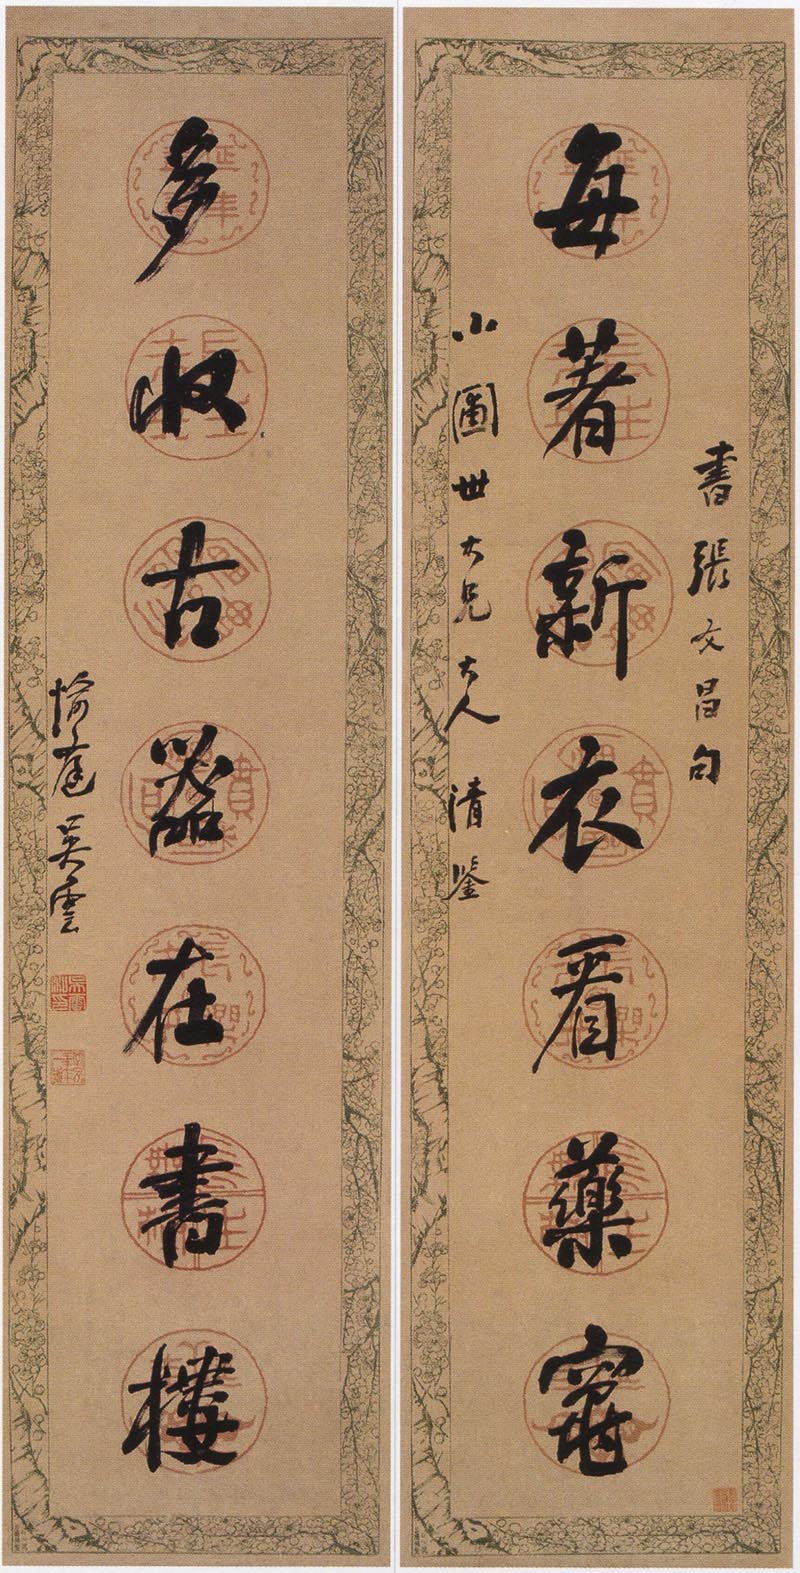 書張文昌句
每著新衣看藥竈
小圃世大兄大人清鑒
多收古器在書樓
愉庭吳雲